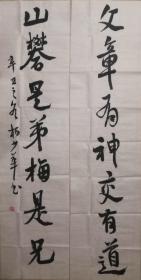 文章有神交有道
山礬是弟梅是兄
辛丑之冬 少年书